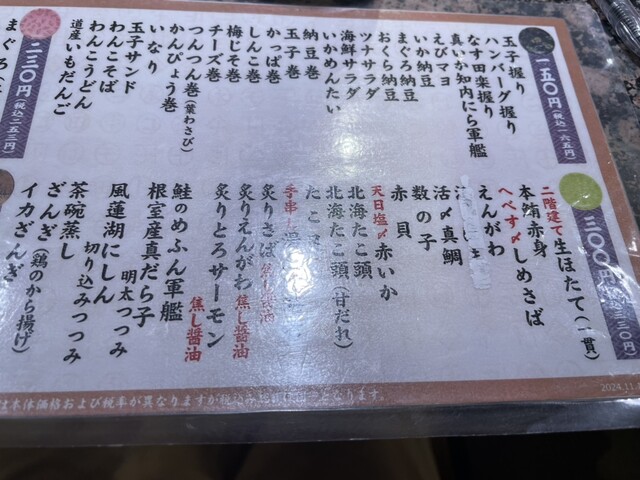 一五〇円(税込一六五円)
玉子握り
ハンバーグ握り
なす田楽握り
真いか知内にら軍艦
えびマヨ
いか納豆
まぐろ納豆
おくら納豆
ツナサラダ
海鮮サラダ
いかめんたい
納豆巻
玉子巻
かっぱ巻
しんこ巻
梅じそ巻
チーズ巻
つんつん巻(葉わさび)
かんぴょう巻
いなり
玉子サンド
わんこそば
わんこうどん
道産いもだんご
二三〇円(税込二五三円)
まぐろ
三〇〇円
三三〇円)
二階建て生ほたて(一貫)
本鮪赤身
へべす〆しめさば
えんがわ
活〆真鯛
数の子
赤貝
天日塩〆赤いか
北海たこ頭
北海たこ頭(甘だれ)
たこ
手串し
炙りさば焦し醤油
炙りえんがわ焦し醤油
炙りとろサーモン焦し醤油
鮭のめふん軍艦
根室産真だら子
明太つつみ
風蓮湖にしん
切り込みつつみ
茶碗蒸し
ざんぎ(鶏のから揚げ)
イカざんぎ
は本体価格および税率が異なりますが税込み
となります。
2024.11.